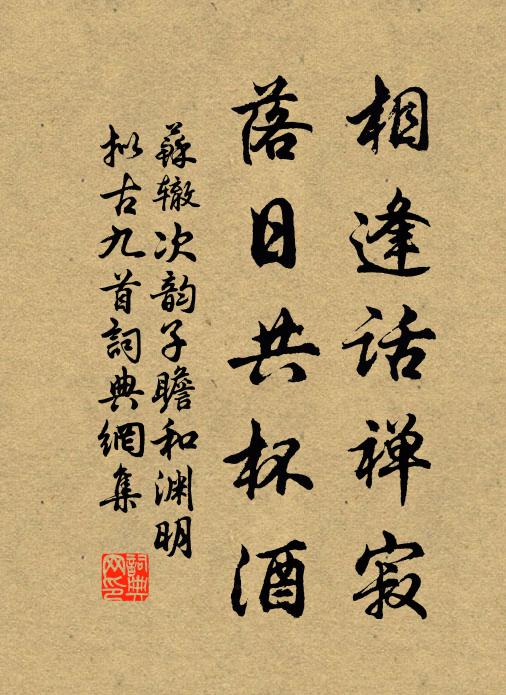 相逢话禅寂
落日共杯酒
蘇辙次韵子瞻和渊明
拟古九首詞典網集
詞典
网印